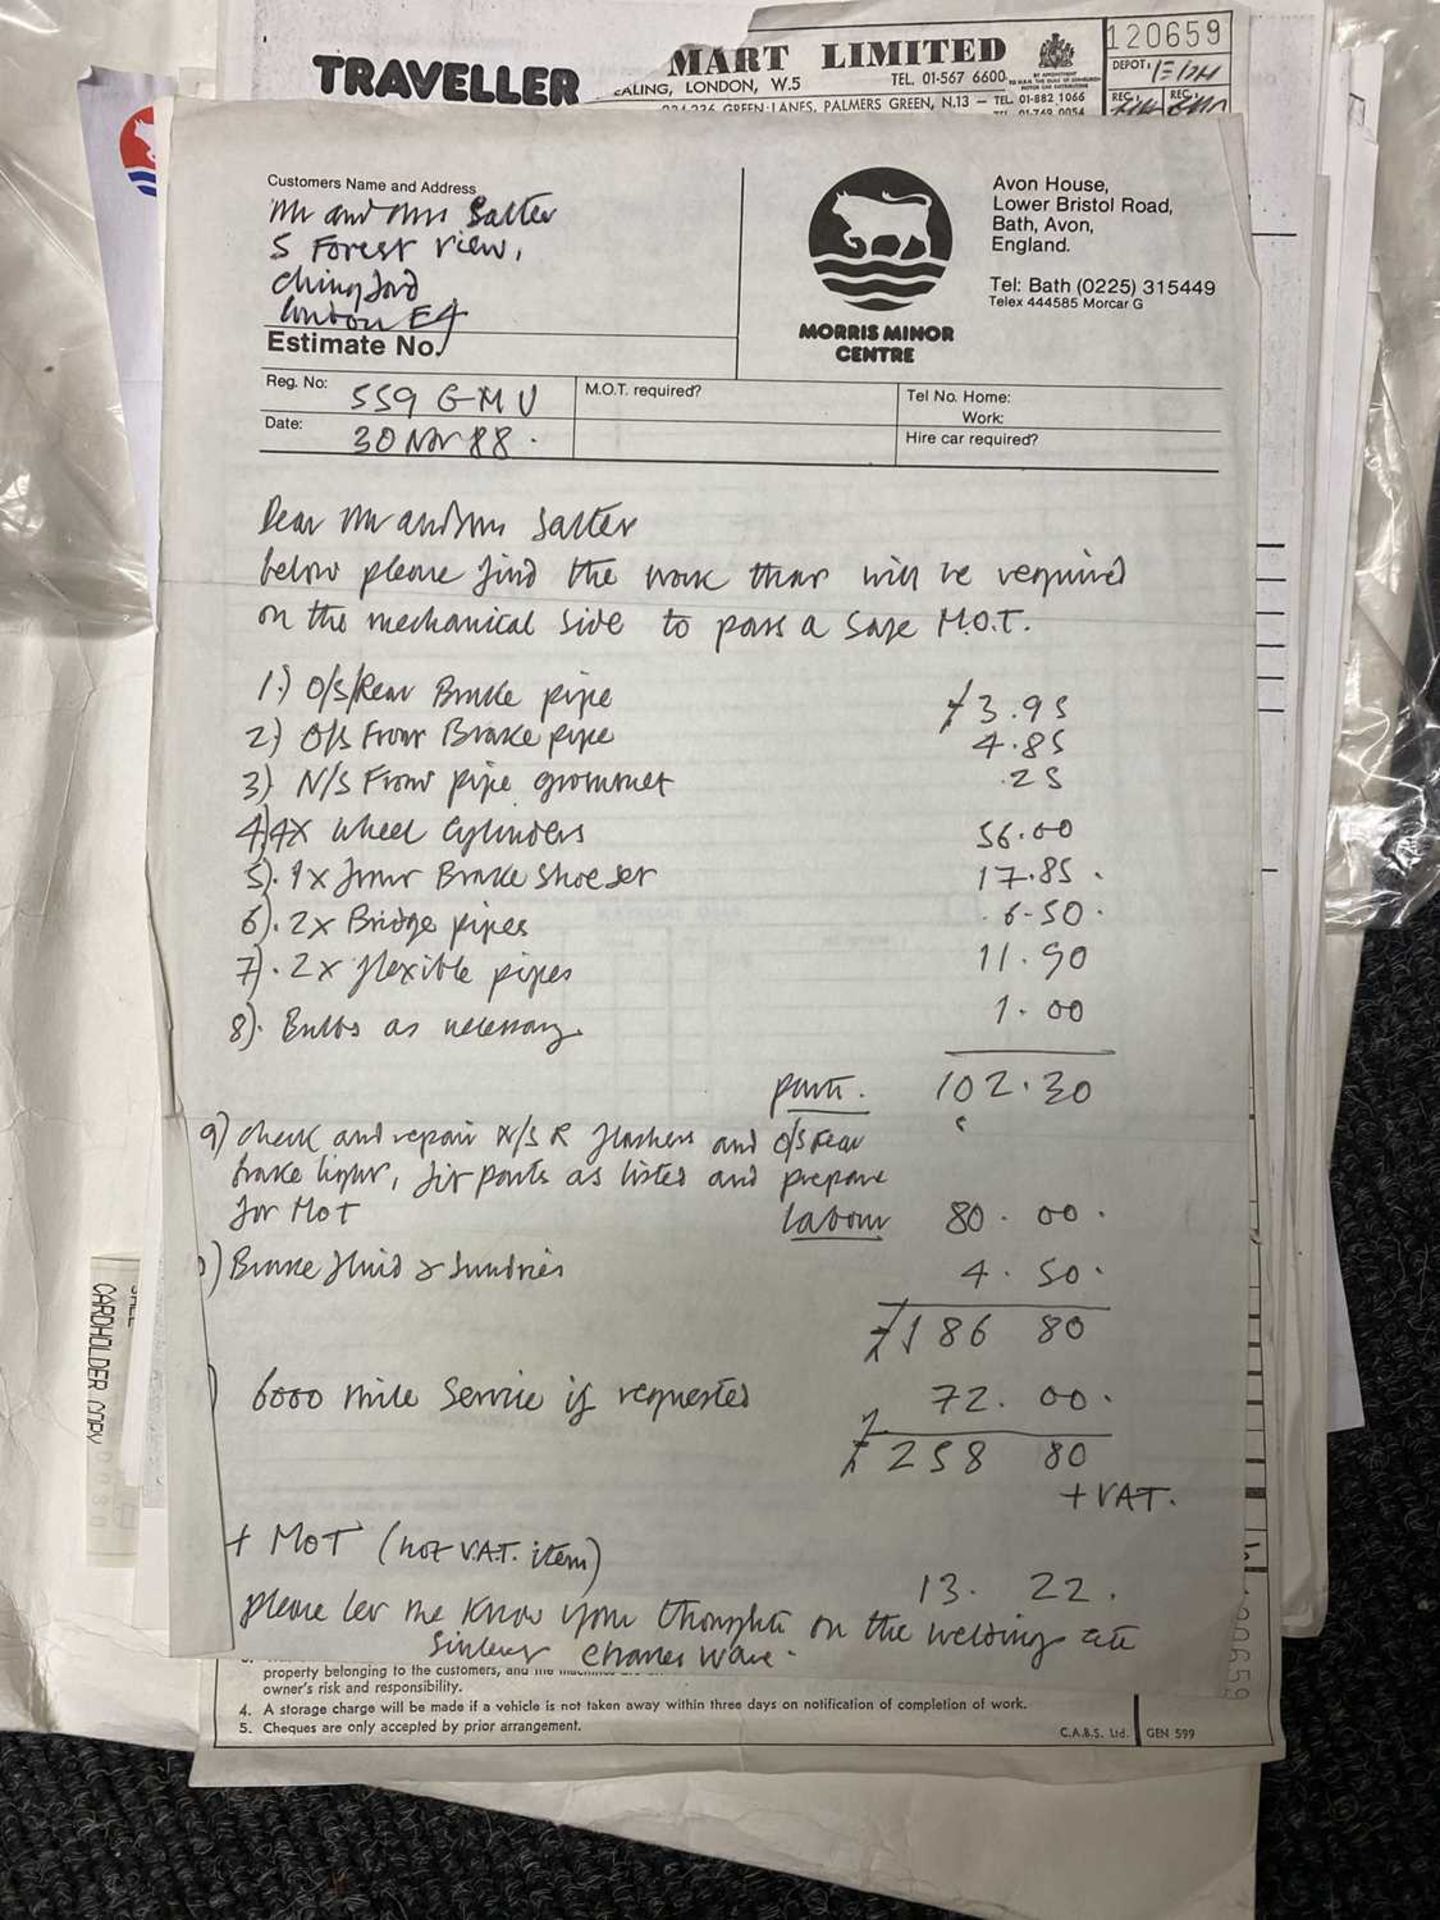 TRAVELLER
MART LIMITED
EALING, LONDON, W.5 TEL. 01-567 6600
GREEN LANES, PALMERS GREEN, N.13 — TEL. 01-882 1066
TEL. 01-769 0054
120659
DEPOT:
REC. REC.
Customers Name and Address
Mr and Mrs Salter
5 Forest View,
Chingford
London E4
Estimate No.
MORRIS MINOR
CENTRE
Avon House,
Lower Bristol Road,
Bath, Avon,
England.
Tel: Bath (0225) 315449
Telex 444585 Morcar G
Reg. No: 559 GMU
M.O.T. required?
Tel No. Home:
Work:
Date: 30 Nov 88.
Hire car required?
Dear Mr and Mrs Salter
below please find the work that will be required
on the mechanical side to pass a safe M.O.T.
1.) O/S/Rear Brake pipe £3.95
2) O/S Front Brake pipe 4.85
3) N/S Front pipe grommet .25
4) 4x Wheel Cylinders 56.00
5). 1x front Brake shoe set 17.85.
6). 2x Bridge pipes 6-50.
7). 2x flexible pipes 11.90
8). Bulbs as necessary. 1.00
parts. 102.30
9) check and repair N/S R flashers and O/S rear
brake light, fit parts as listed and prepare
for MoT labour 80.00.
) Brake fluid & sundries 4.50.
£186 80
6000 mile Service if requested 72.00.
£258 80
+ VAT.
+ MoT (not V.A.T. item)
13. 22.
please let me know your thoughts on the welding etc
Charles Ware.
property belonging to the customers, and
owner's risk and responsibility.
4. A storage charge will be made if a vehicle is not taken away within three days on notification of completion of work.
5. Cheques are only accepted by prior arrangement.
C.A.B.S. Ltd. GEN 599
CARDHOLDER COPY